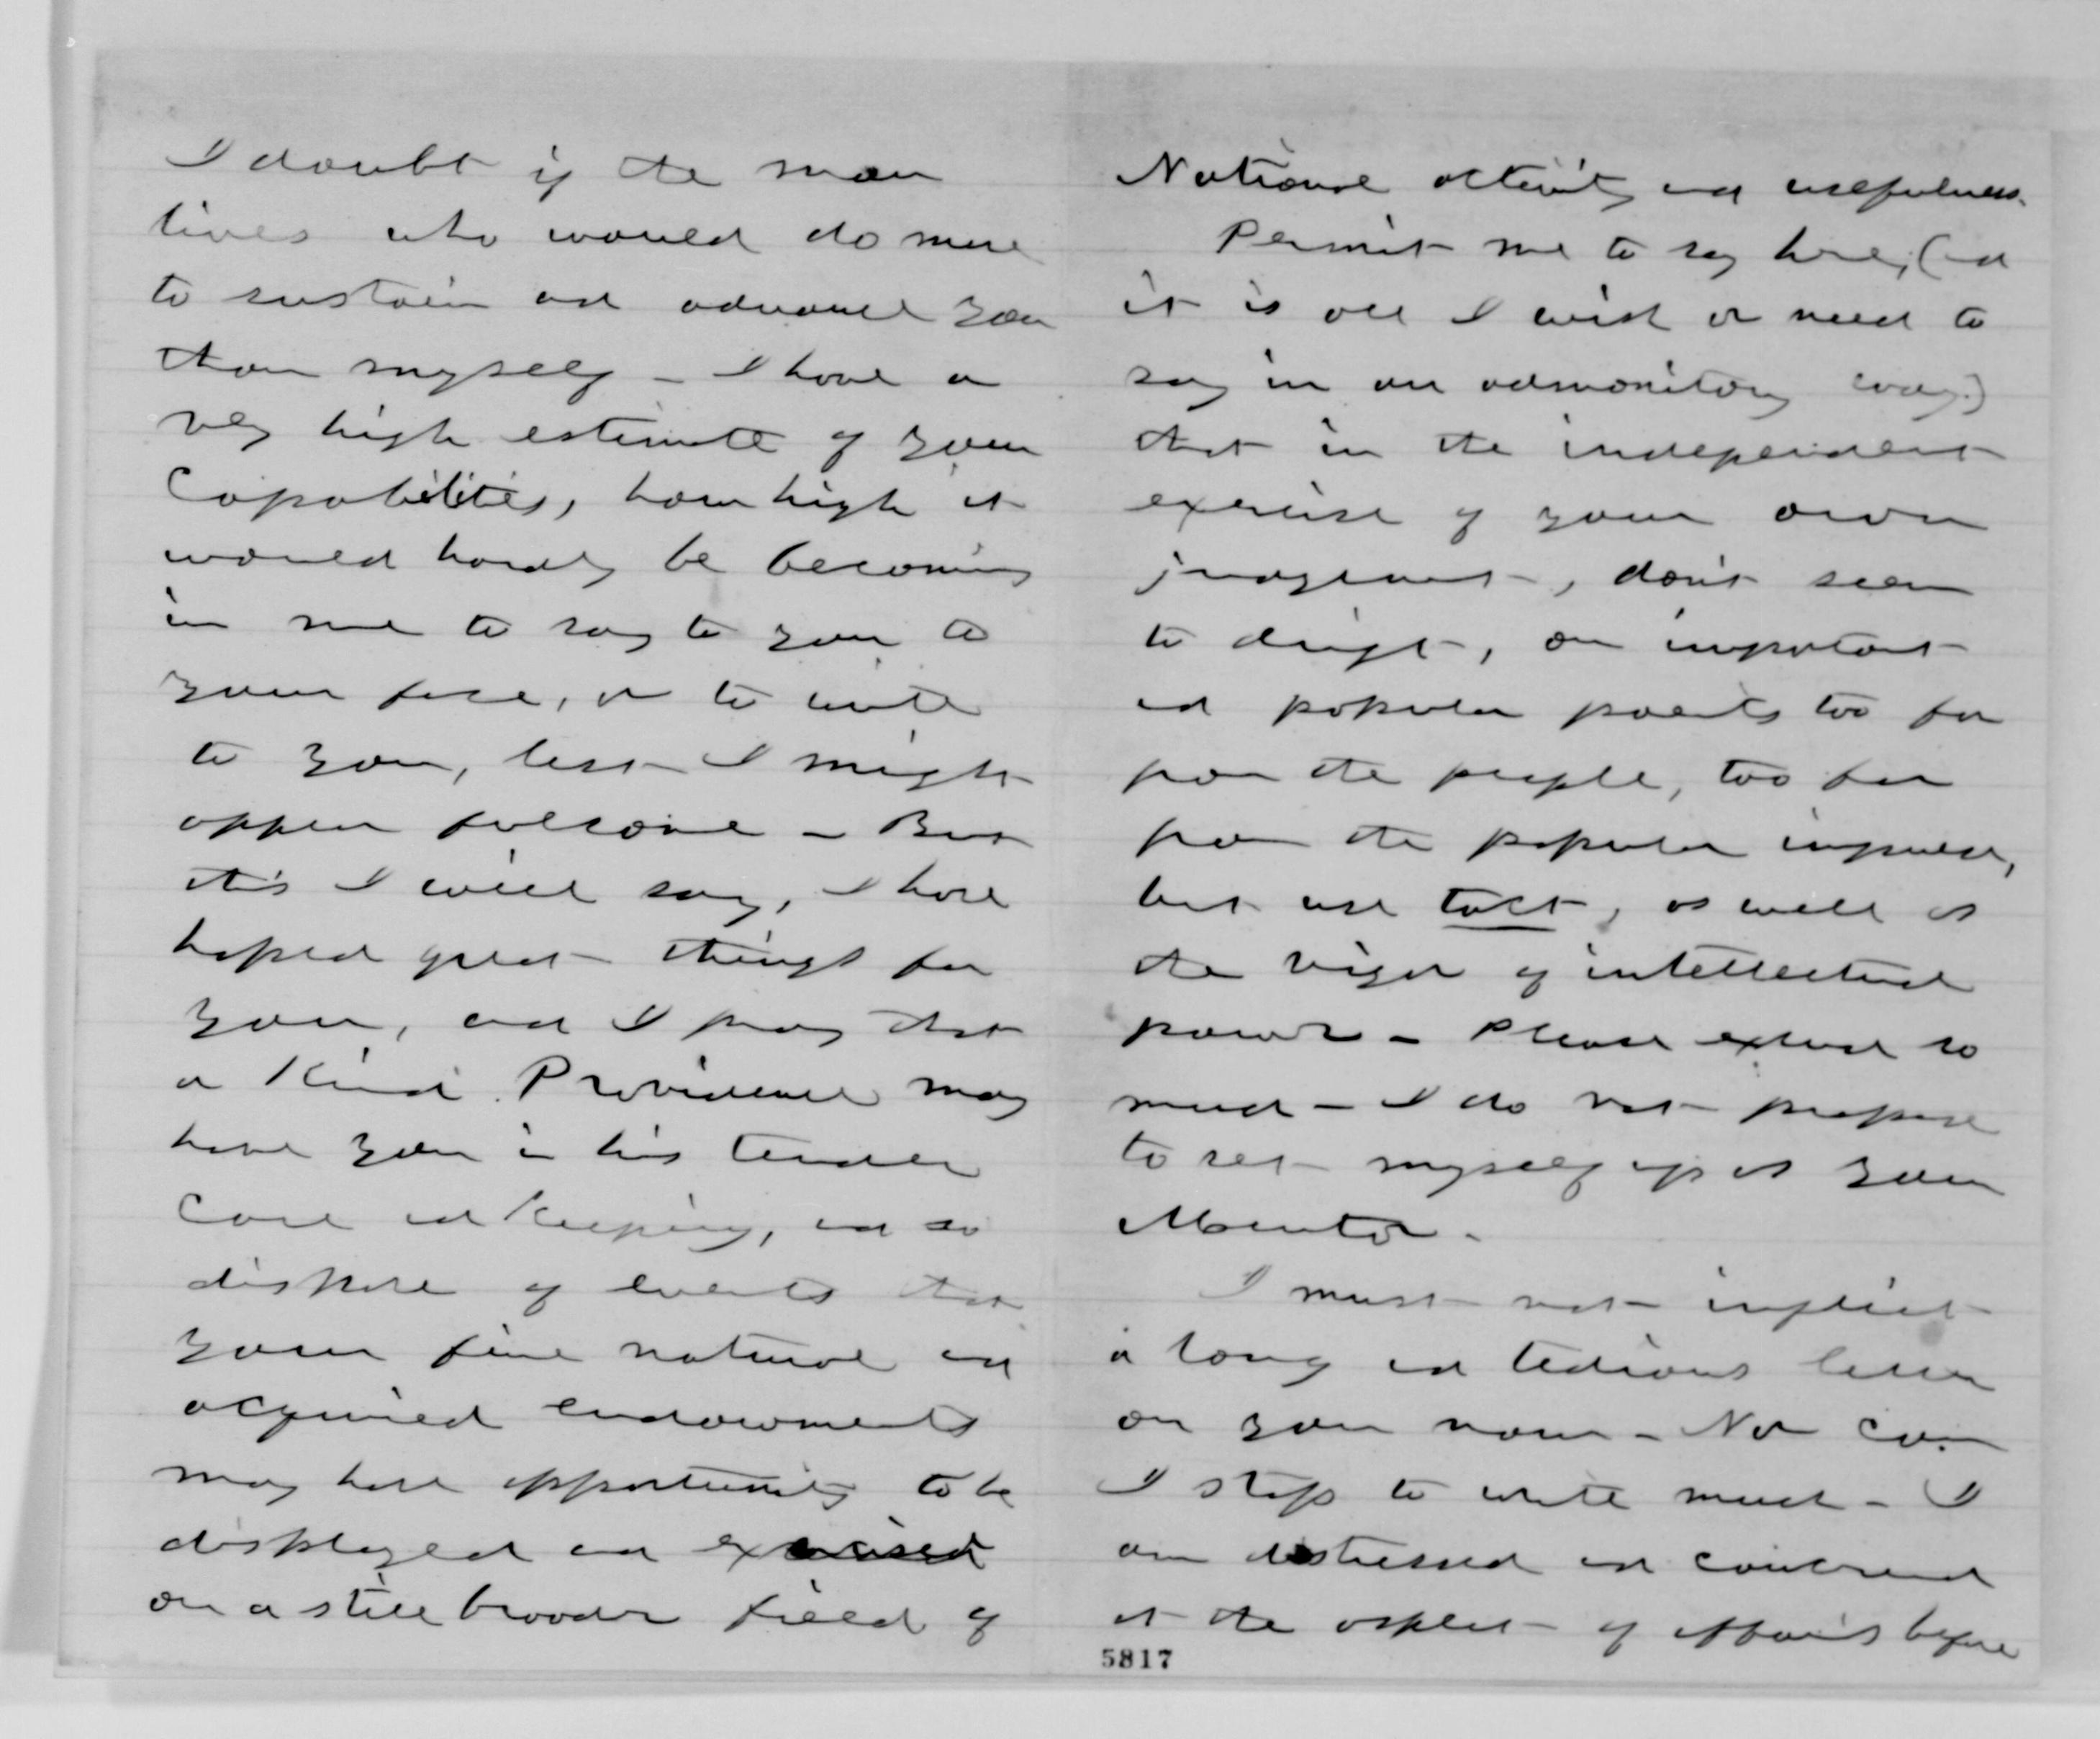 I doubt if the man
lives who would do more
to sustain and advance you
than myself - I have a
very high estimate of your
Capabilities, how high it
would hardly be becoming
in me to say to you to
your face, or to write
to you, lest I might
appear fulsome - But
this I will say, I have
hoped great things for
you, and I pray that
a Kind Providence may
have you in his tender
Care and Keeping, and so
dispose of events that
your fine natural and
acquired endowments
may have opportunity to be
displayed and exercised
on a still broader field of
National activity and usefulness.
Permit me to say here, (and
it is all I wish or need to
say in an admonitory way.)
that in the independent
exercise of your own
judgment, don't seem
to drift, on important
and popular points too far
from the people, too far
from the popular impulse,
but use tact, as well as
the vigor of intellectual
power - Please excuse so
much - I do not propose
to set myself up as your
Mentor -
I must not inflict
a long and tedious letter
on you now - Nor can
I stop to write much - I
am distressed and concerned
at the aspect of affairs before
5817